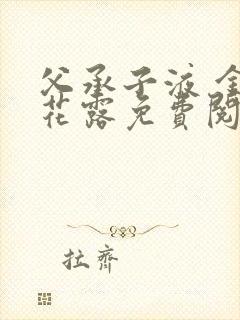 父承子液 金
花露免費閱
拉齊